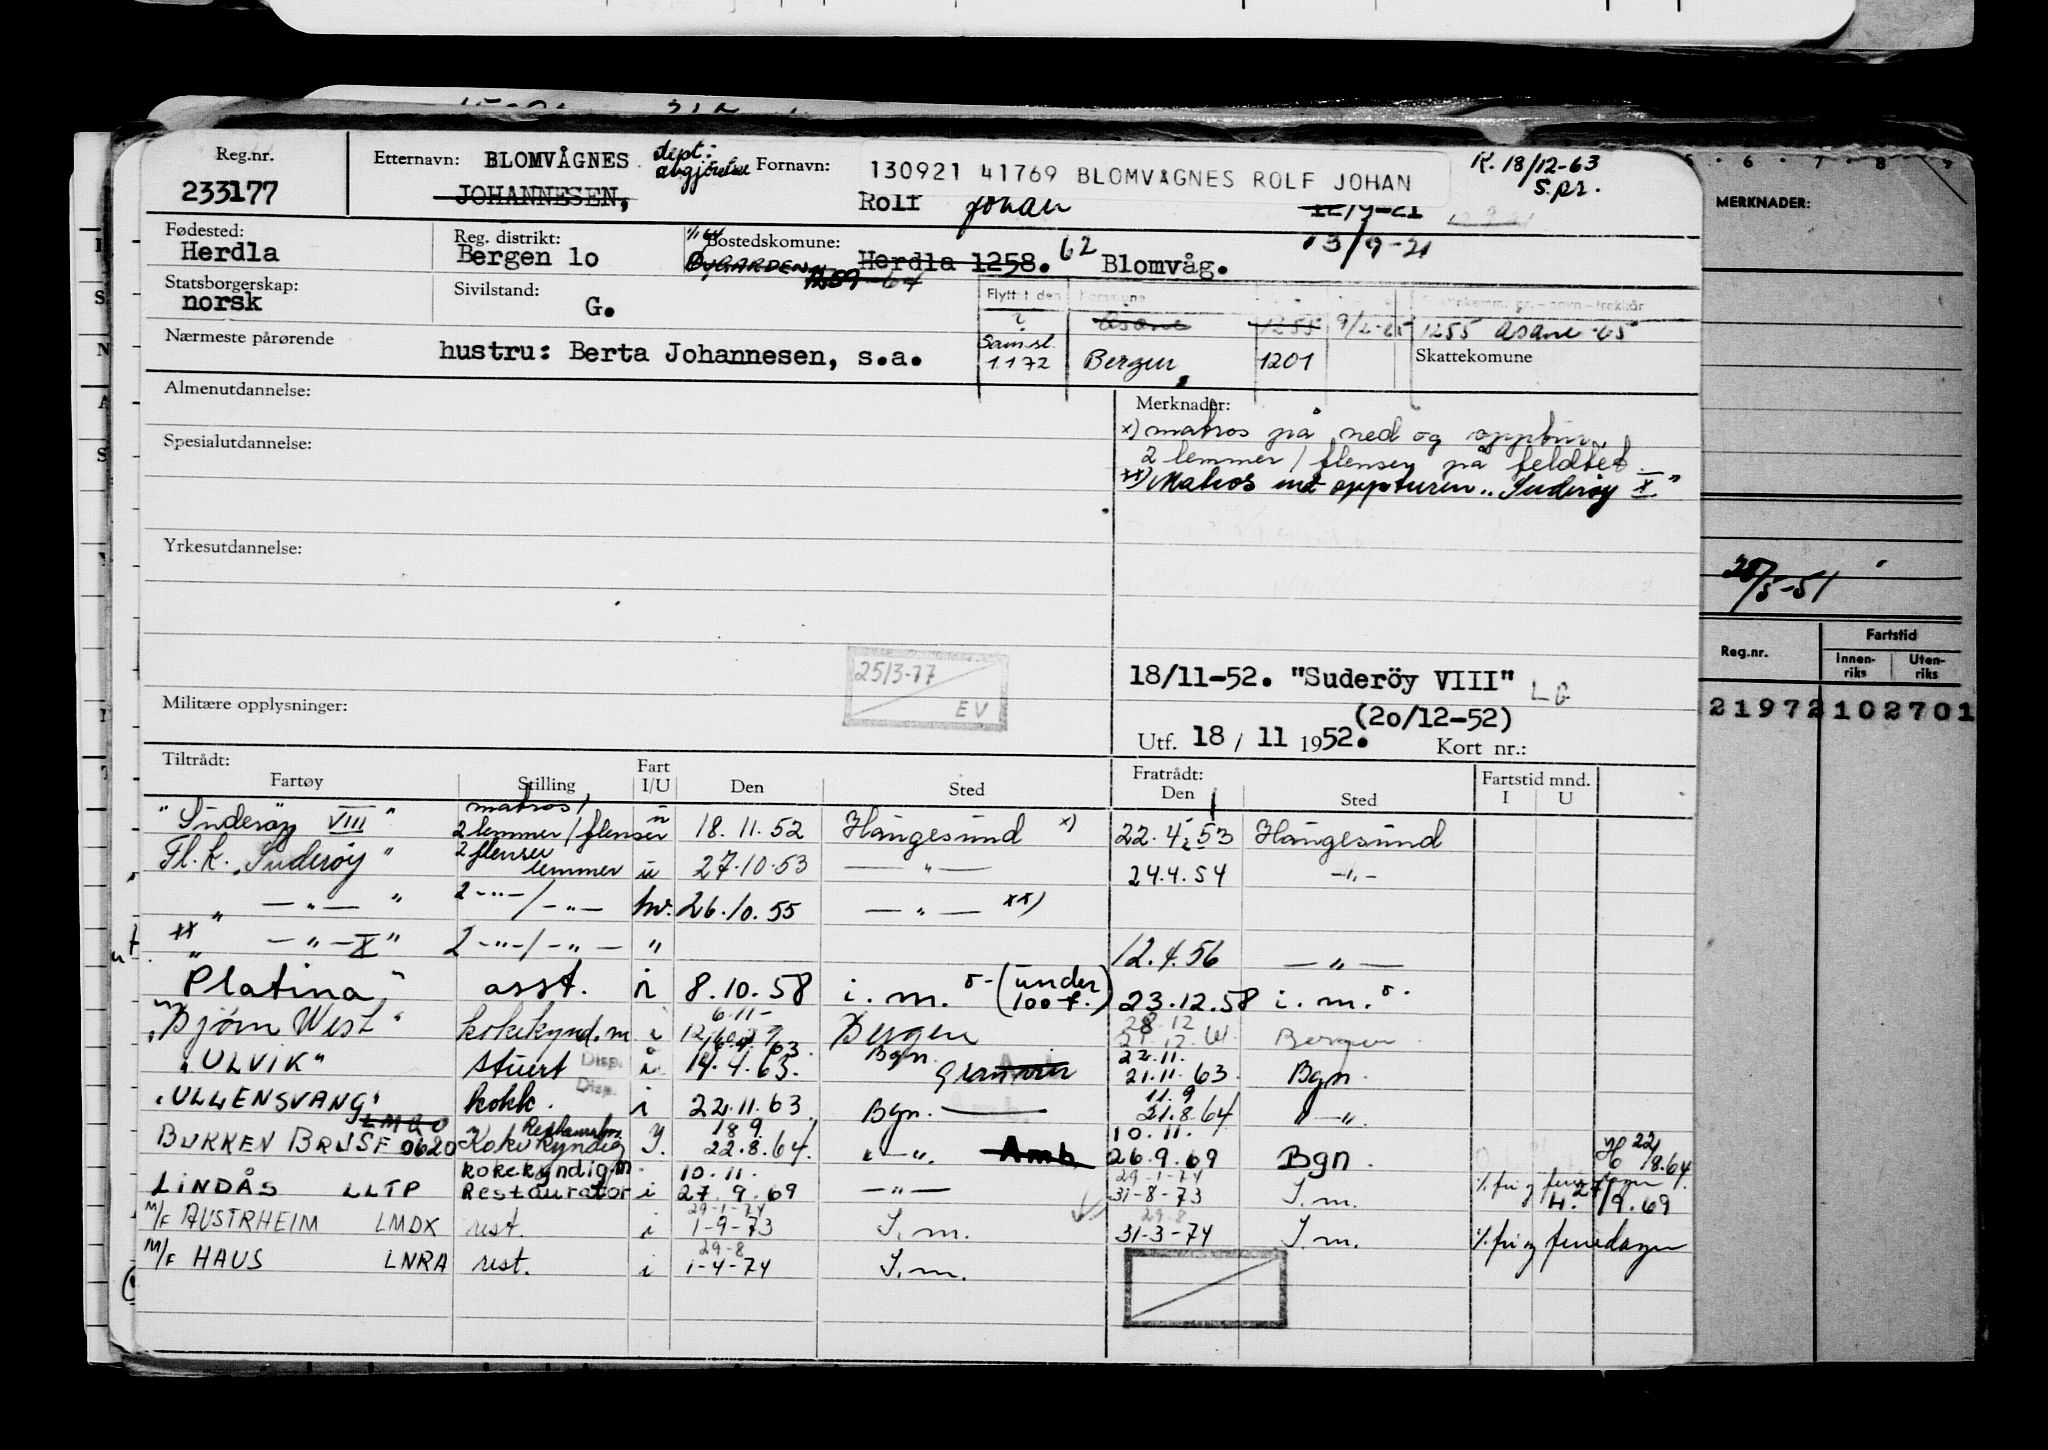 Reg.nr. Etternavn: BLOMVÅGNES dept: avgjørelse Fornavn: 130921 41769 BLOMVÅGNES ROLF JOHAN K. 18/12-63 S.pr.
233177 JOHANNESEN, Rolf Johan 12/9-21
13/9-21
MERKNADER:
Fødested: Reg. distrikt: Bostedskomune:
Herdla Bergen 10 ØYGARDEN Herdla 1258. 62 Blomvåg.
1259 -64
Statsborgerskap: Sivilstand:
norsk G.
Flyttet den Komune
? Åsane 1255 9/2-65 1255 Åsane 65
Nærmeste pårørende hustru: Berta Johannesen, s.a.
Sam.sl. 1172 Bergen 1201 Skattekomune
Almenutdannelse: Merknader:
x) matros på ned og opptur,
2 lemmer / flenser på feldtet
xx) Matros med oppturen "Suderöy X."
Spesialutdannelse:
Yrkesutdannelse:
28/5-51
Reg.nr. Fartstid
Innen-riks Uten-riks
21972102701
25/3-77
EV
18/11-52. "Suderöy VIII" LG
(20/12-52)
Militære opplysninger:
Utf. 18 / 11 1952. Kort nr.:
Tiltrådt: Fratrådt: Fartstid mnd.
Fartøy Stilling Fart I/U Den Sted Den Sted I U
"Suderöy VIII" matros / 2 lemmer / flenser u 18.11.52 Haugesund x) 22.4.53 Haugesund
Fl.k. "Suderöy" 2 flenser lemmer u 27.10.53 — " — 24.4.54 -"-
" — " — " 2 -"- / -"- hv. 26.10.55 — " — xx)
xx " — " — X" 2 -"- / -"- " 12.4.56 — " —
"Platina" asst. i 8.10.58 i.m. (under 100 t.) 23.12.58 i.m.
"Bjørn West" kokekynd.m i 6.11- Bergen 28.12 Bergen
"ULVIK" stuert Disp. i 14.4.63. Bgn. Granvin 22.11. 21.11.63. Bgn.
"ULLENSVANG" kokk. Disp. i 22.11.63 Bgn. — 11.9 21.8.64 " — ".
LMQO
BUKKEN BRUSE 0620 Kokekyndig Restaurator Y. 18.9 22.8.64. " — ". Amb 10.11. 26.9.69 Bgn. H 22/8.64
LINDÅS LLTP kokekyndig.m Restaurator i 10.11. 27.9.69 — " — 29-1-74 31-8-73 I.m. % fri og feriedager H. 27/9.69
M/F AUSTRHEIM LMDX rest. i 29-1-74 1-9-73 I.m. 29-8 31-3-74 I.m. % fri og feriedager
M/F HAUS LNRA rest. i 29-8 1-4-74 I.m.